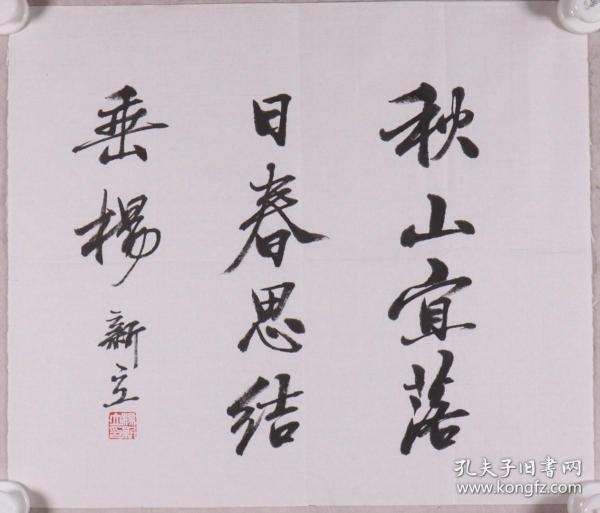 秋山宜落
日春思结
垂楊
新立
孔夫子旧书网
www.kongfz.com